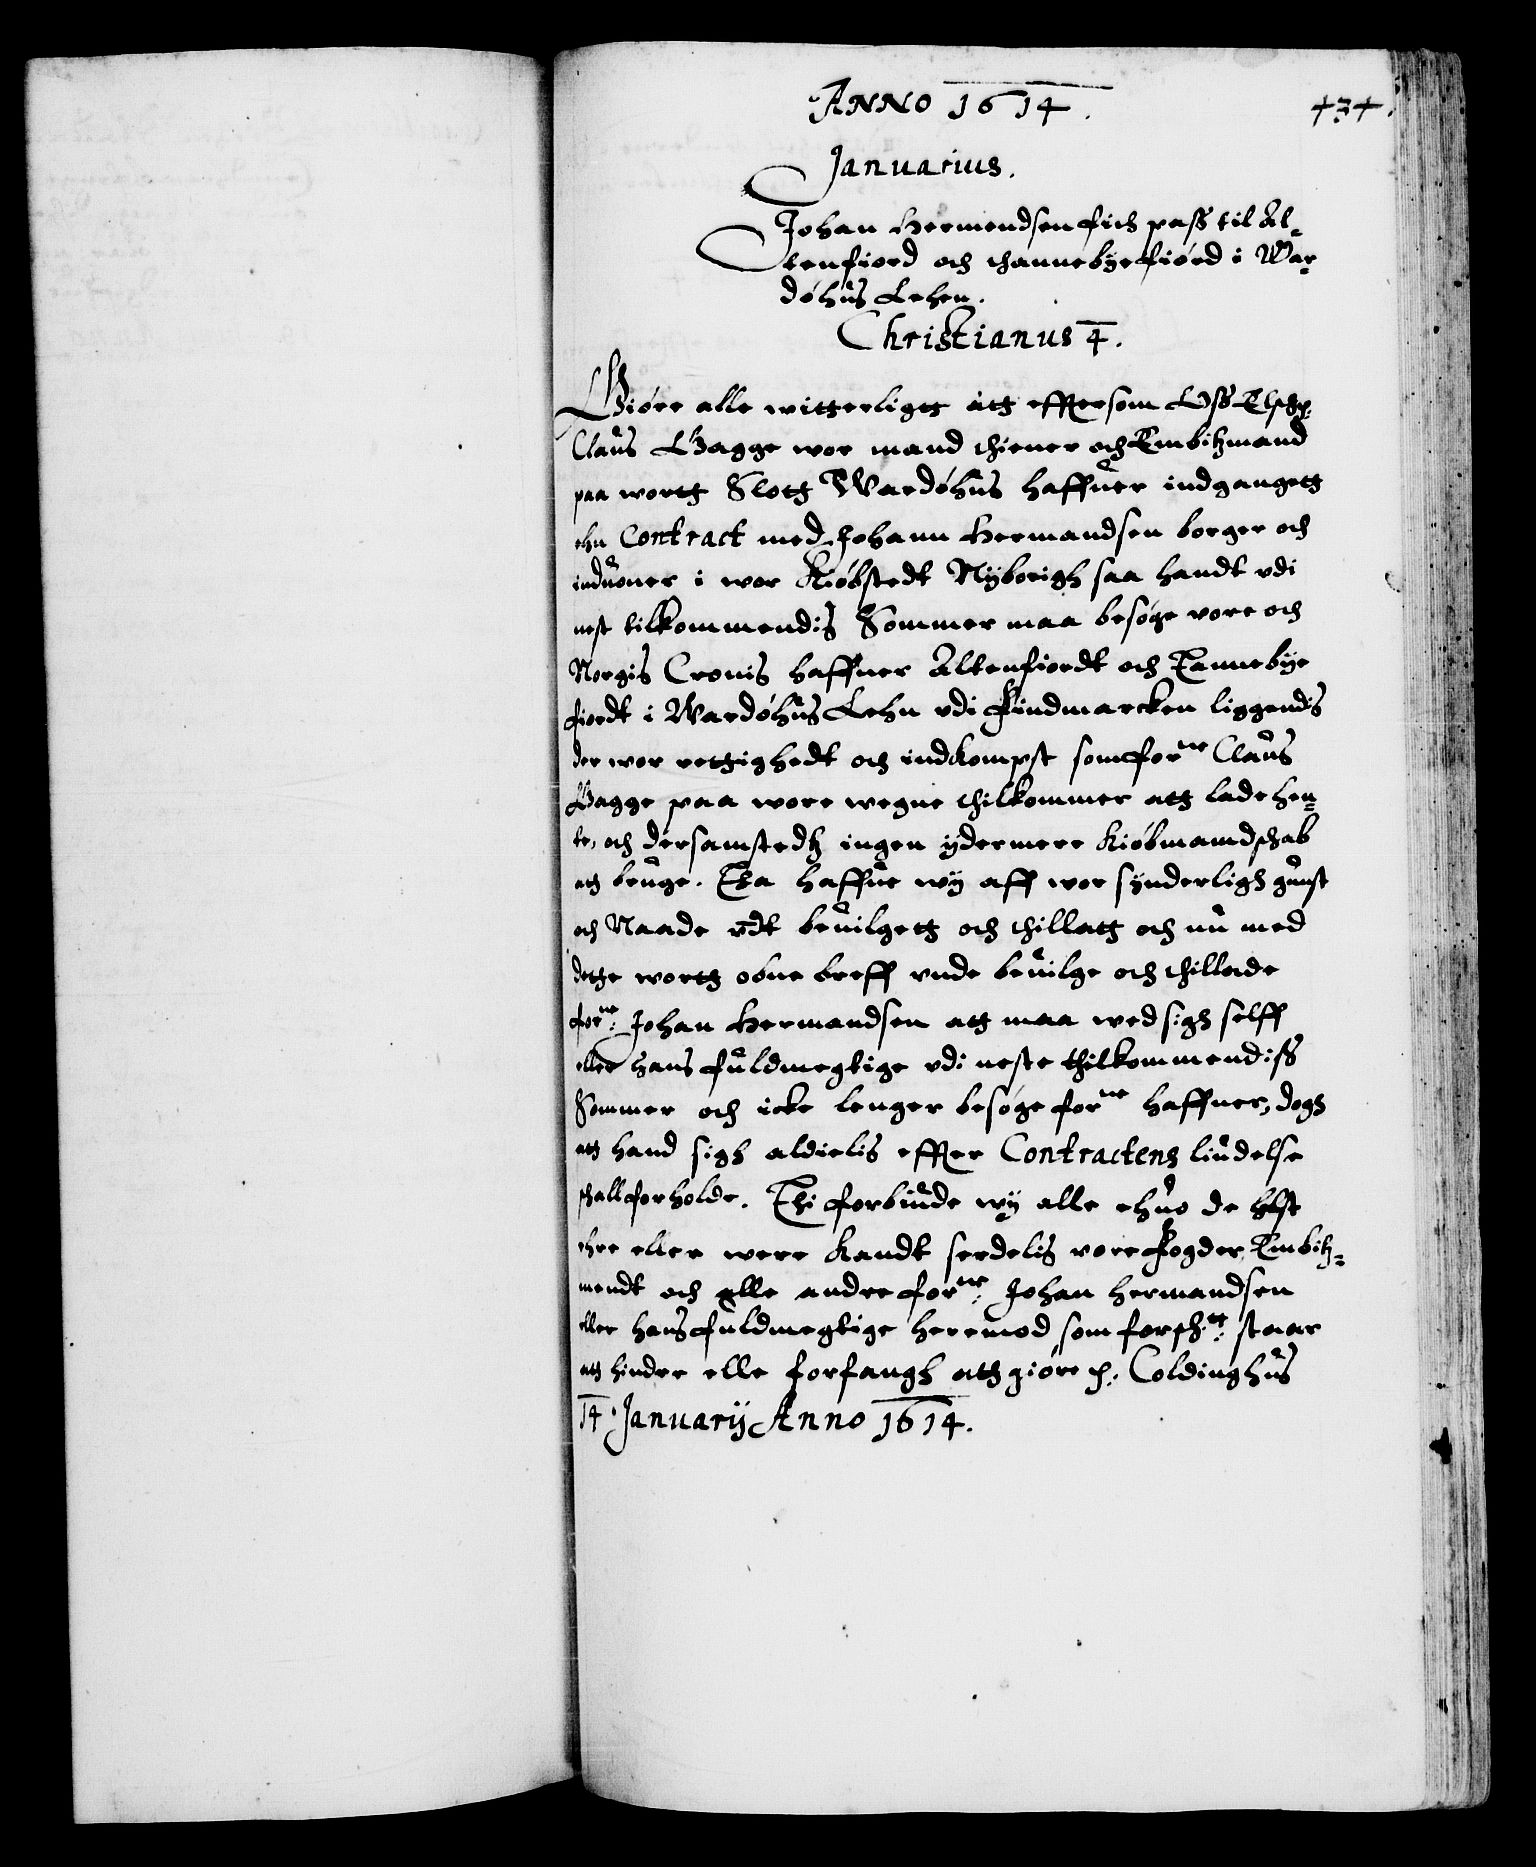 ANNO 1614.
434.
Januarius.
Johan Hermendsen fich pass til Al-
tenfiord och thannebye fiörd i War-
döhus Lehen.
Christianus 4.
Giöre alle witterligtt att effttersom Oss Elschr.
Claus Gagge wor mand thiener och Embitzmand
paa wortt Slott Wardöhus haffuer indgangett
ehn Contract med Johann Hermandsen borger och
induoner i wor Kiöbstedt Nyborigh saa handt vdi
nest tilkommendis Sommer maa besöge vore och
Norgis Cronis haffner Altenfiordt och Tannebye
fiordt i Wardöhus Lehn vdi Findmarcken liggendis
der wor rettighedt och indkompst som forne Claus
Gagge paa wore wegne thilkommer att lade hen-
te, och dersamstedtz ingen ydermere Kiöbmandschab
att bruge. Tha haffue wy aff wor synderligh gunst
och Naade vdt beuilgett och thillatt och nu med
dette wortt obne breff vnde beuilge och thillade
forne: Johan Hermandsen att maa wed sigh selff
eller hans fuldmegtige vdi neste thilkommendiss
Sommer och icke lenger besöge forne haffner, dogh
att hand sigh aldielis effter Contractens liudelse
schall forholde. Thi forbiude wy alle ehuo de helst
ehre eller were kandt serdelis vore Fogder Embitz-
mendt och alle andre forne: Johan Hermandsen
eller hans fuldmegtige heremod som forsch:tt staar
att hindre elle forfangh att giöre p. Coldinghus
14 Januarij Anno 1614.